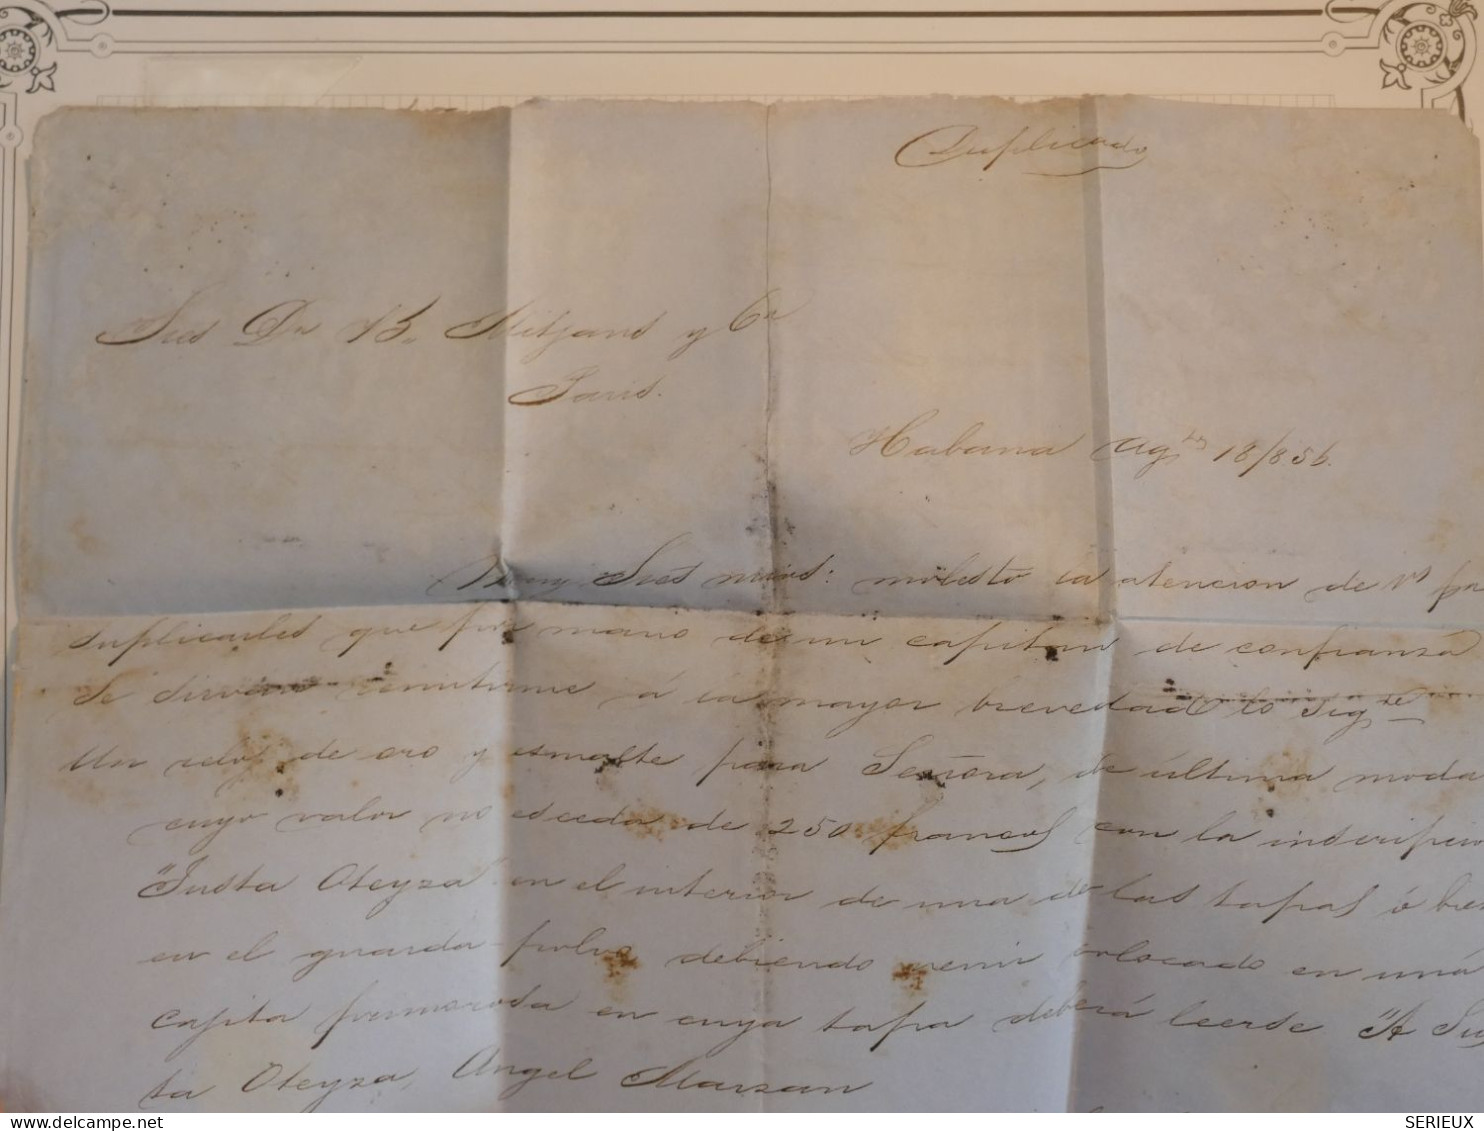 Duplicado
Sres Dn B. Mitjans y Ca
Paris.
Habana Agto 18/856.
Muy Sres mios: molesto la atencion de Vs pa
suplicarles que por mano de un capitan de confianza
se sirvan remitirme á la mayor brevedad lo Sigte
Un reloj de oro y esmalte para Señora, de última moda
cuyo valor no esceda de 250 francos con la inscripcion
"Justa Oteyza" en el interior de una de las tapas ó bien
en el guarda-polvo debiendo venir colocado en una
cajita primorosa en cuya tapa deberá leerse "A Jus
ta Oteyza, Angel Marzan
SERIEUX